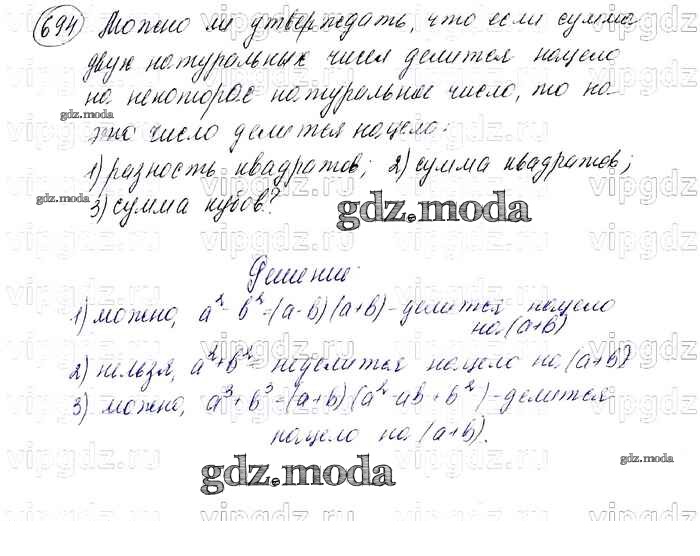 694 Можно ли утверждать, что если сумма
двух натуральных чисел делится нацело
на некоторое натуральное число, то на
это число делится нацело:
1) разность квадратов; 2) сумма квадратов;
3) сумма кубов?
gdz.moda
Решение:
1) можно, a² - b² = (a-b)(a+b) - делится нацело
на (a+b)
2) нельзя, a² + b² - не делится нацело на (a+b)
3) можно, a³ + b³ = (a+b)(a² - ab + b²) - делится
нацело на (a+b).
gdz.moda